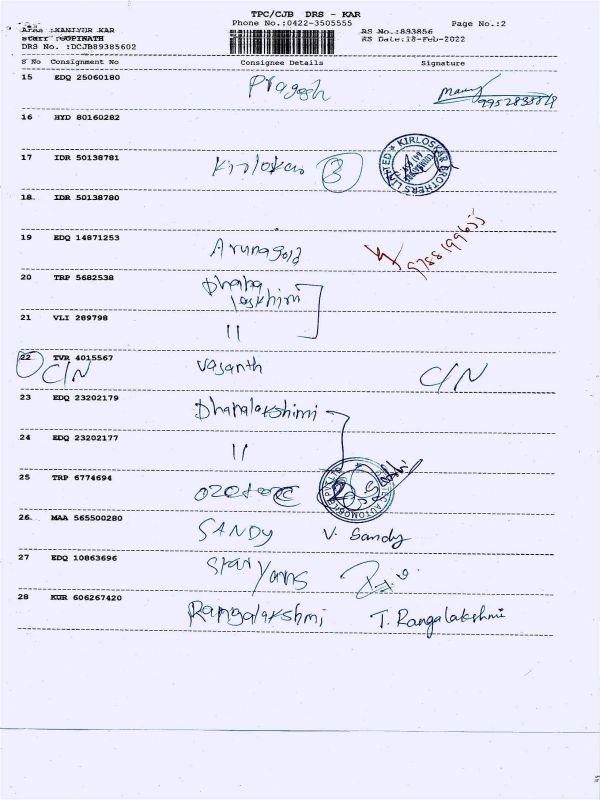 TPC/CJB DRS - KAR
Phone No.:0422-3505555 Page No.:2
Area :KANIYUR KAR RS No.:893856
Staff :GOPINATH RS Date:18-Feb-2022
DRS No. :DCJB89385602
S No Consignment No Consignee Details Signature
15 EDQ 25060180 Pragash
16 HYD 80160282
17 IDR 50138781 Kirloskar 3 KIRLOSKAR BROTHERS LIMITED
18. IDR 50138780
19 EDQ 14871253
20 TRP 5682538 Dhana
laskhimi
21 VLI 289798 11
22 TVR 4015567 Vasanth C/N
C/N
23 EDQ 23202179 Dhanalakshimi
24 EDQ 23202177 11
25 TRP 6774694
26. MAA 565500280 SANDY V. Sandy
27 EDQ 10863696 Star Yarns
28 KUR 606267420 Rangalakshmi T. Rangalakshmi